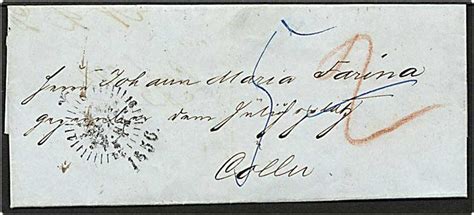 5 2
Herrn Johann Maria Farina
gegenüber dem Jülichsplatz
Cölln
1856.